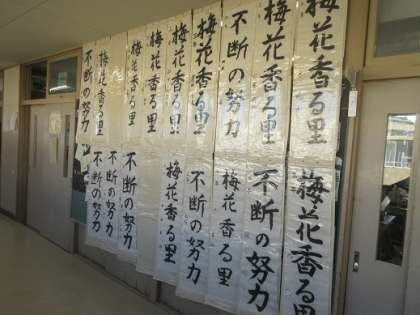 梅花香る里
梅花香る里
不断の努力
梅花香る里
梅花香る里
梅花香る里
梅花香る里
梅花香る里
不断の努力
梅花香る里
不断の努力
梅花香る里
不断の努力
梅花香る里
不断の努力
不断の努力
不断の努力